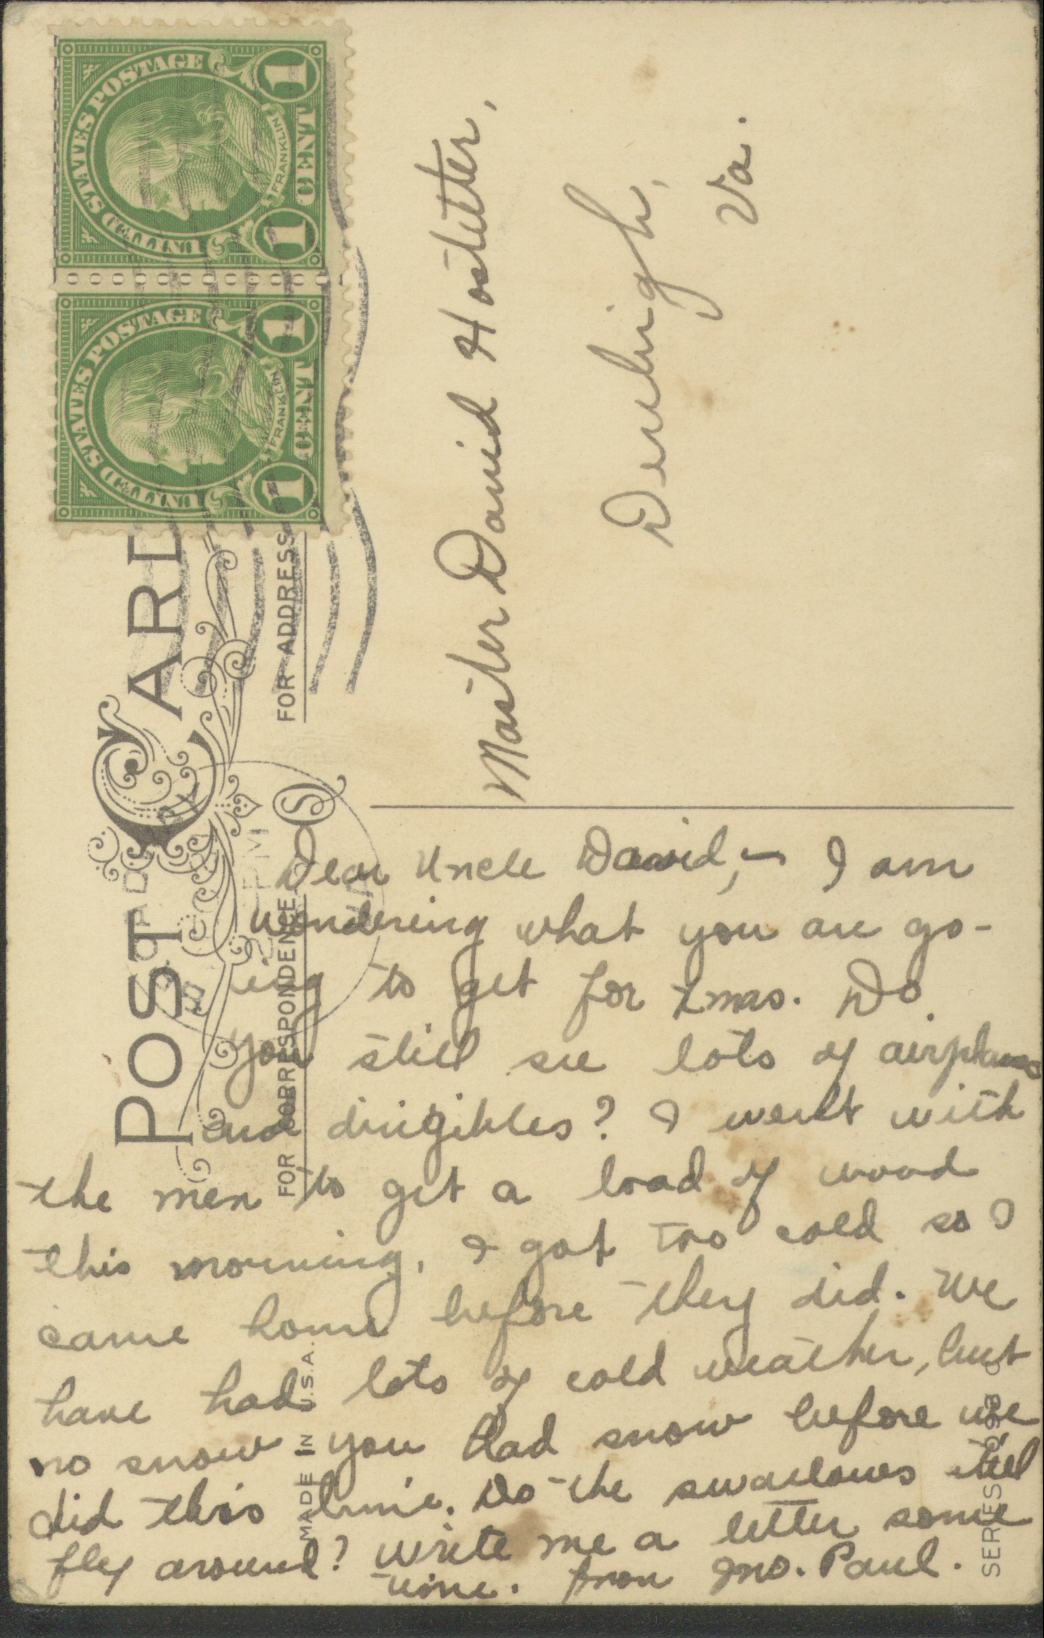 UNITED STATES POSTAGE
FRANKLIN
1 CENT 1
UNITED STATES POSTAGE
FRANKLIN
1 CENT 1
POST CARD
FOR CORRESPONDENCE
FOR ADDRESS
Master David Hostetter,
Denbigh,
Va.
Dear Uncle David, - I am
wondering what you are go-
ing to get for Xmas. Do
you still see lots of airplanes
and dirigibles? I went with
the men to get a load of wood
this morning. I got too cold so I
came home before they did. We
have had lots of cold weather, but
no snow you had snow before we
did this time. Do the swallows still
fly around? Write me a letter some
time. from Jno. Paul.
MADE IN U.S.A.
SERIES